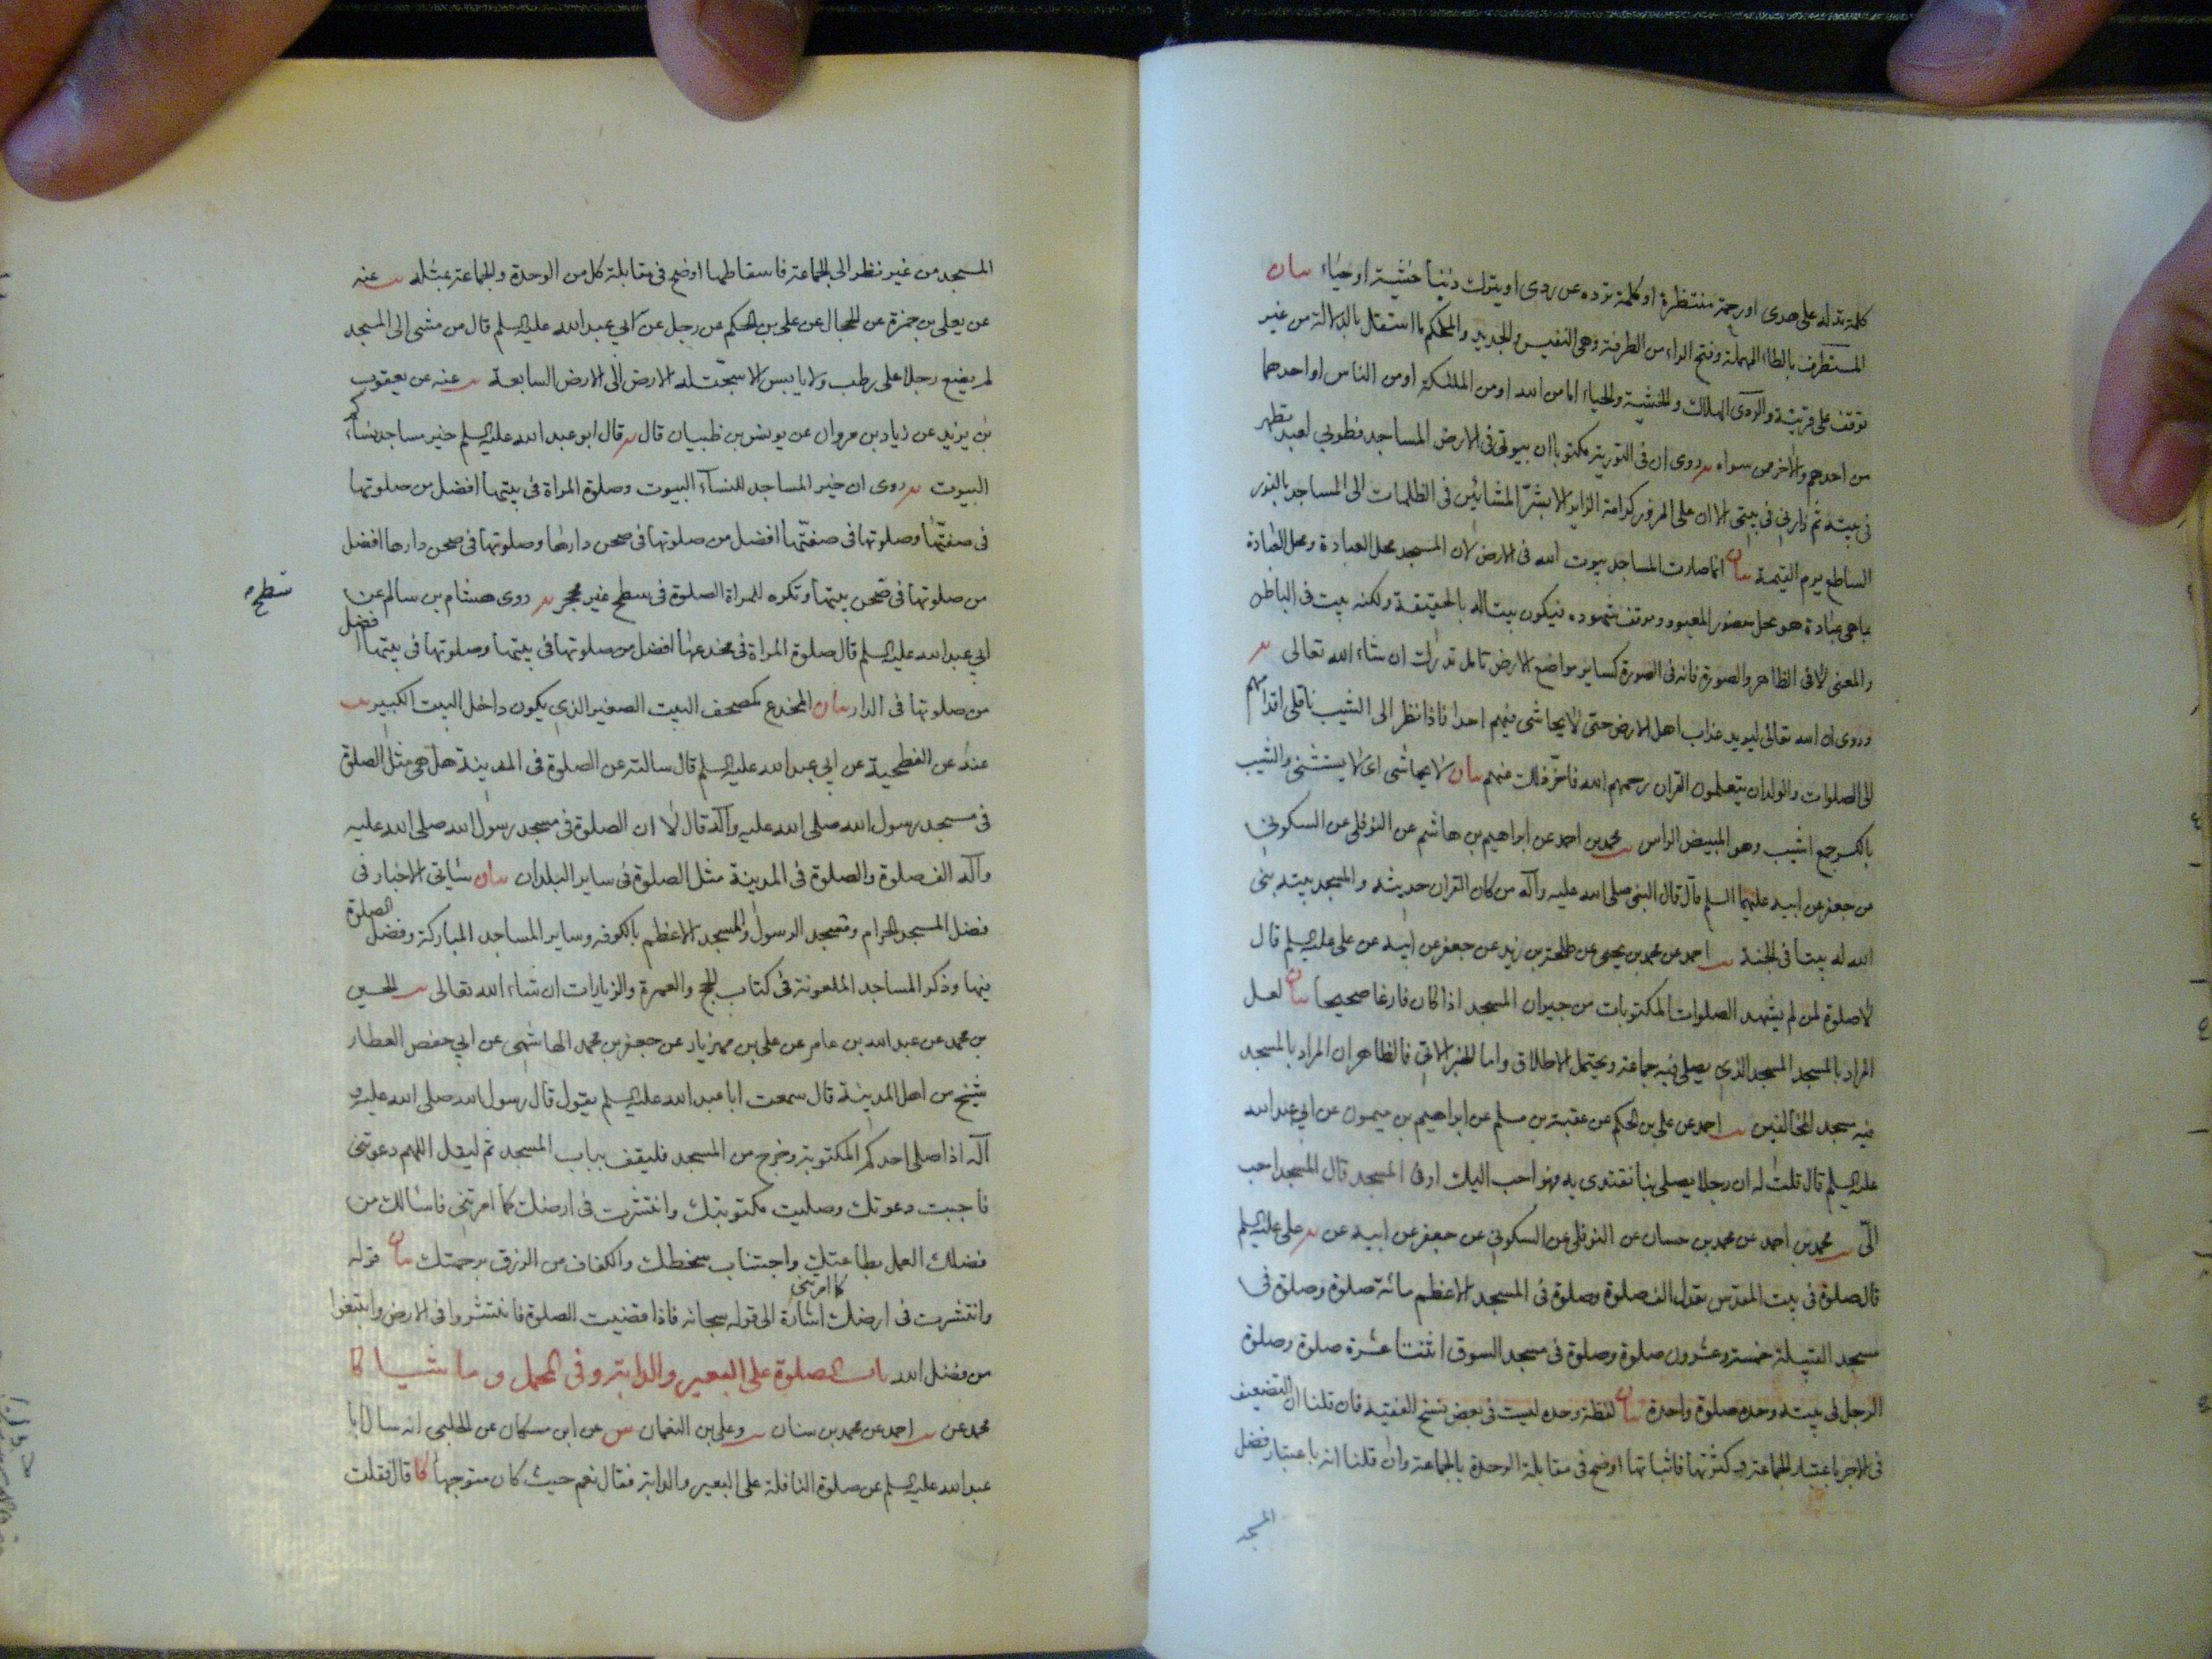 كلمة تدله على هدى او رحمة منتظرة او كلمة ترده عن ردى او يترك ذنبا خشية او حياء بيان
المستطرف بالطاء المهملة وفتح الراء من الطرفة وهى النفيس والجديد والمحكم ما استقل بالدلالة من غير
توقف على قرينة والردى الهلاك والخشية والحياء اما من الله او من الملئكة او من الناس او احدهما
من احدهم والاخر من سواه يه روى ان فى التورية مكتوبا ان بيوتى فى الارض المساجد فطوبى لعبد تطهر
فى بيته ثم زارنى فى بيتى الا ان على المزور كرامة الزاير الا بشر المشائين فى الظلمات الى المساجد بالنور
الساطع يوم القيمة بيان انما صارت المساجد بيوت الله فى الارض لان المسجد محل العبادة ومحل العبادة
بما هى عبادة هو محل حضور المعبود وموقف شهوده فيكون بيتا له بالحقيقة ولكنه بيت فى الباطن
والمعنى لا فى الظاهر والصورة فانه فى الصورة كساير مواضع الارض تامل تدرك ان شاء الله تعالى يه
وروى ان الله تعالى ليريد عذاب اهل الارض حتى لا يحاشى منهم احدا فاذا نظر الى الشيب ناقلى اقدامهم
الى الصلوات والولدان يتعلمون القران رحمهم الله فاخر ذلك عنهم بيان لا يحاشى اى لا يستثنى والشيب
بالكسر جمع اشيب وهو المبيض الراس يب محمد بن احمد عن ابراهيم بن هاشم عن النوفلى عن السكونى
عن جعفر عن ابيه عليهما السلم قال قال النبى صلى الله عليه وآله من كان القران حديثه والمسجد بيته بنى
الله له بيتا فى الجنة يب احمد عن محمد بن يحيى عن طلحة بن زيد عن جعفر عن ابيه عن على عليه السلم قال
لا صلوة لمن لم يشهد الصلوات المكتوبات من جيران المسجد اذا كان فارغا صحيحا بيان لعل
المراد بالمسجد المسجد الذى يصلى فيه جماعة ويحتمل الاطلاق واما الخبر الاتى فالظاهر ان المراد بالمسجد
فيه مسجد المخالفين يب احمد عن على بن الحكم عن عقبة بن مسلم عن ابراهيم بن ميمون عن ابى عبد الله
عليه السلم قال قلت له ان رجلا يصلى بنا نقتدى به فهو احب اليك او فى المسجد قال المسجد احب
الى يب محمد بن احمد عن محمد بن حسان عن النوفلى عن السكونى عن جعفر عن ابيه عن يه على عليه السلم
قال صلوة فى بيت المقدس تعدل الف صلوة وصلوة فى المسجد الاعظم مائة صلوة وصلوة فى
مسجد القبيلة خمسة وعشرون صلوة وصلوة فى مسجد السوق اثنتا عشرة صلوة وصلوة
الرجل فى بيته وحده صلوة واحدة بيان لفظة وحده ليست فى بعض نسخ الفقيه فان قلنا ان التضعيف
فى الاجر باعتبار الجماعة وكثرتها فاثباتها اوضح فى مقابلة الوحدة بالجماعة وان قلنا انه باعتبار فضل
المسجد
المسجد من غير نظر الى الجماعة فاسقاطها اوضح فى مقابلة كل من الوحدة والجماعة بمثله يب عنه
عن يعلى بن حمزة عن الحجال عن على بن الحكم عن رجل عن ابى عبد الله عليه السلم قال من مشى الى المسجد
لم يضع رجلا على رطب ولا يابس الا سبحت له الارض الى الارض السابعة يب عنه عن يعقوب
بن يزيد عن زياد بن مروان عن يونس بن ظبيان قال يه قال ابو عبد الله عليه السلم خير مساجد نساءكم
البيوت يه روى ان خير المساجد للنساء البيوت وصلوة المراة فى بيتها افضل من صلوتها
فى صفتها وصلوتها فى صفتها افضل من صلوتها فى صحن دارها وصلوتها فى صحن دارها افضل
من صلوتها فى صحن بيتها وتكره للمراة الصلوة فى سطح غير محجر يه روى هشام بن سالم عن
سطح
ابى عبد الله عليه السلم قال صلوة المراة فى مخدعها افضل من صلوتها فى بيتها وصلوتها فى بيتها افضل
من صلوتها فى الدار بيان المخدع كمصحف البيت الصغير الذى يكون داخل البيت الكبير يب
عنه عن الفطحية عن ابى عبد الله عليه السلم قال سالته عن الصلوة فى المدينة هل هى مثل الصلوة
فى مسجد رسول الله صلى الله عليه وآله قال لا ان الصلوة فى مسجد رسول الله صلى الله عليه
وآله الف صلوة والصلوة فى المدينة مثل الصلوة فى ساير البلدان بيان سياتى الاخبار فى
فضل المسجد الحرام ومسجد الرسول والمسجد الاعظم بالكوفه وساير المساجد المباركة وفضل الصلوة
فيها وذكر المساجد الملعونة فى كتاب الحج والعمرة والزيارات ان شاء الله تعالى يب الحسين
بن محمد عن عبد الله بن عامر عن على بن مهزيار عن جعفر بن محمد الهاشمى عن ابى حفص العطار
شيخ من اهل المدينة قال سمعت ابا عبد الله عليه السلم يقول قال رسول الله صلى الله عليه و
آله اذا صلى احدكم المكتوبة وخرج من المسجد فليقف بباب المسجد ثم ليقل اللهم دعوتنى
فاجبت دعوتك وصليت مكتوبتك وانتشرت فى ارضك كما امرتنى فاسالك من
فضلك العمل بطاعتك واجتناب سخطك والكفاف من الرزق برحمتك بيان قوله
وانتشرت فى ارضك كما امرتنى اشارة الى قوله سبحانه فاذا قضيت الصلوة فانتشروا فى الارض وابتغوا
من فضل الله باب الصلوة على البعير والدابة وفى المحمل وماشيا كا
محمد عن يب احمد عن محمد بن سنان يب وعلى بن النعمان س عن ابن مسكان عن الحلبى انه سال ابا
عبد الله عليه السلم عن صلوة النافلة على البعير والدابة فقال نعم حيث كان متوجها كا قال فقلت